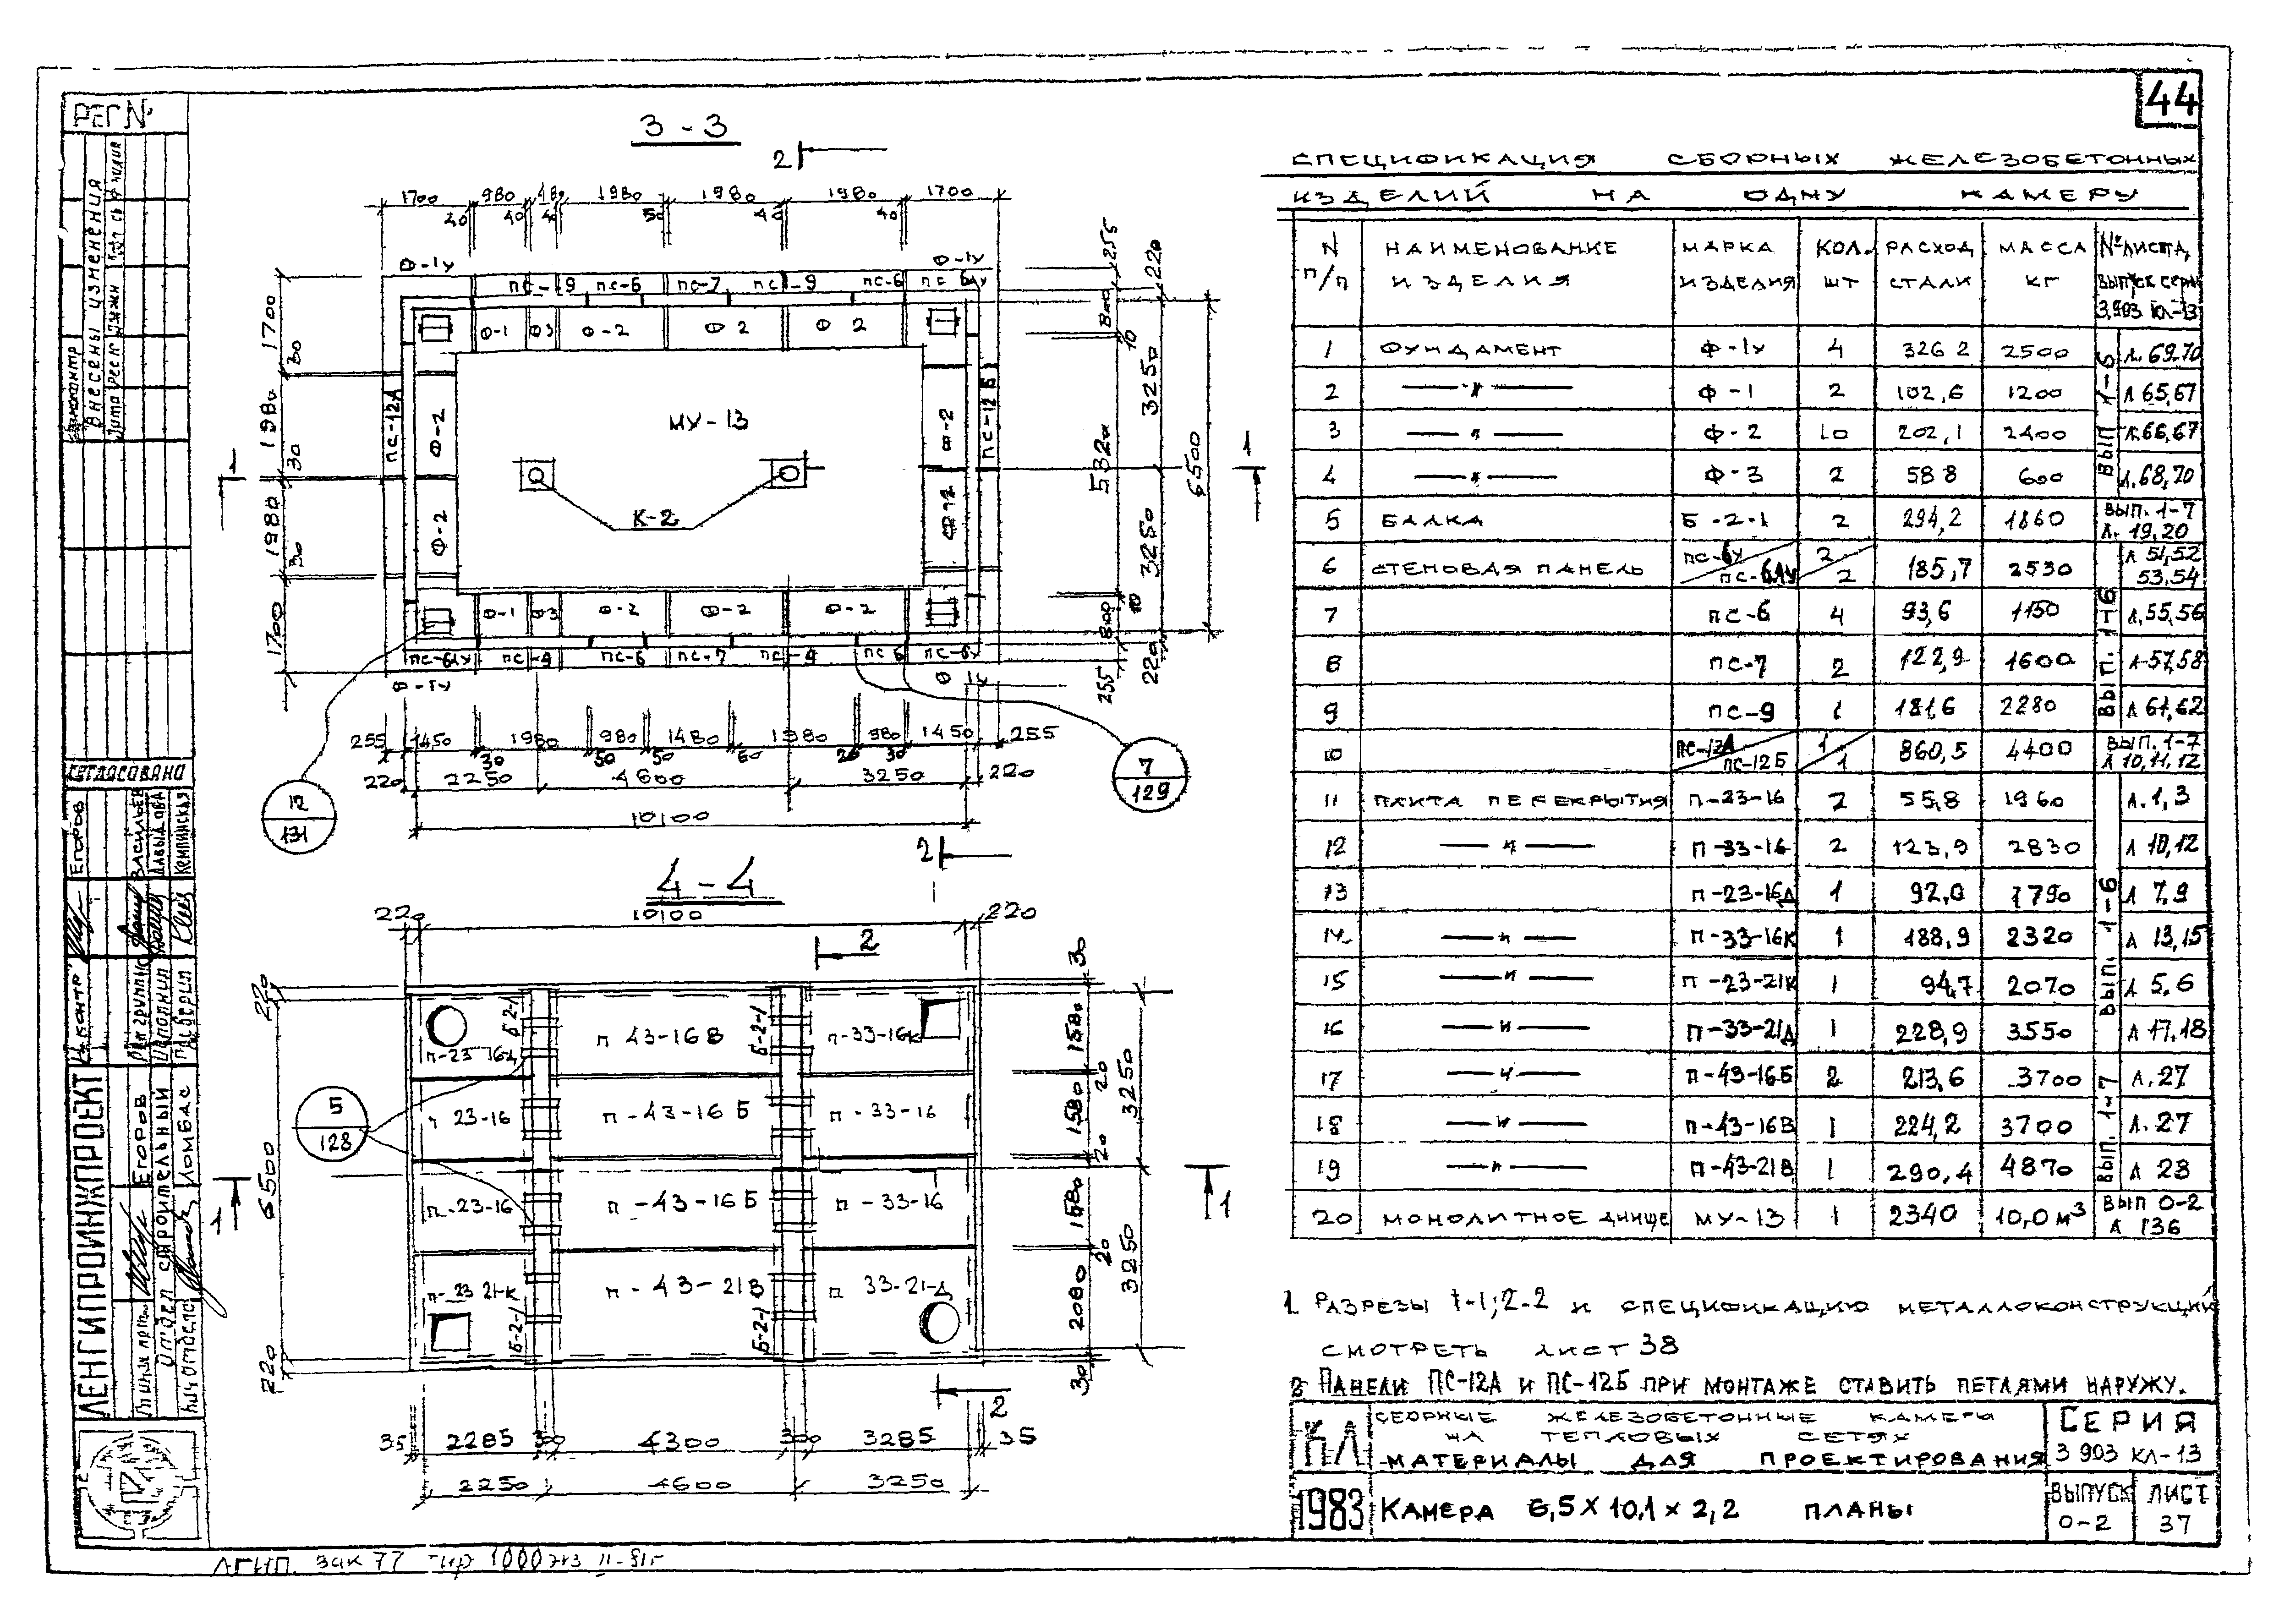 44
РЕГ №
3-3
2
1700 980 480 1980 1980 1980 1700
40 40 40 50 40 40
Ф-1у Ф-1у
ПС-9 ПС-6 ПС-7 ПС-9 ПС-6 ПС-6у
Ф-1 Ф3 Ф-2 Ф 2 Ф 2
255 220
800 10
1700 30 1980 30 1980 30 1700
ПС-12А Ф-2 Ф-2
МУ-13
К-2
Ф-2 ПС-12Б
3250 5320 3250 6500
1 1
Ф-1 Ф3 Ф-2 Ф-2 Ф-2
800 10
ПС-6АУ ПС-9 ПС-6 ПС-7 ПС-9 ПС 6 ПС-6у
Ф-1у Ф 1у
255 220
255 1450 1980 980 1480 1980 980 1450 255
30 50 50 50 20 30
220 2250 4600 3250 220
10100
12
131
7
129
2
4-4
220 10100 220
2
30
220 6500 220
П-23 16Д Б-2-1 П 43-16 В Б-2-1 П-33-16К
5
128
23-16 П-43-16 Б П-33-16
П-23-16 П-43-16 Б П-33-16
П-23 21-К Б-2-1 П-43-21В Б-2-1 П 33-21-Д
1580 20 1580 20 1580 20 2080 30
3250 3250
1 1
2
35 2285 300 4300 300 3285 35
2250 4600 3250
СПЕЦИФИКАЦИЯ СБОРНЫХ ЖЕЛЕЗОБЕТОННЫХ
ИЗДЕЛИЙ НА ОДНУ КАМЕРУ
N п/п НАИМЕНОВАНИЕ ИЗДЕЛИЯ МАРКА ИЗДЕЛИЯ КОЛ. ШТ РАСХОД СТАЛИ МАССА КГ № ЛИСТА, ВЫПУСК СЕРИИ 3,903 КЛ-13
1 ФУНДАМЕНТ Ф-1у 4 326 2 2500 ВЫП 1-6 Л. 69.70
2 —"— Ф-1 2 102,6 1200 Л 65,67
3 —"— Ф-2 10 202,1 2400 Л.66,67
4 —"— Ф-3 2 58 8 600 Л.68,70
5 БАЛКА Б-2-1 2 294,2 1860 ВЫП. 1-7 Л. 19,20
6 СТЕНОВАЯ ПАНЕЛЬ ПС-6У/ПС-6АУ 2/2 185,7 2530 ВЫП. 1-6 Л 51,52 53,54
7 ПС-6 4 93,6 1150 Л.55,56
8 ПС-7 2 122,9 1600 Л-57,58
9 ПС-9 1 181,6 2280 Л 61,62
10 ПС-12А/ПС-12Б 1/1 860,5 4400 ВЫП. 1-7 Л 10,11,12
11 ПЛИТА ПЕРЕКРЫТИЯ П-23-16 2 55,8 1960 ВЫП. 1-6 Л.1,3
12 —"— П-33-16 2 123,9 2830 Л 10,12
13 П-23-16Д 1 92,0 1790 Л 7,9
14 —"— П-33-16К 1 188,9 2320 Л 13,15
15 —"— П-23-21К 1 94,7 2070 Л 5,6
16 —"— П-33-21Д 1 228,9 3550 Л 17,18
17 —"— П-43-16Б 2 213,6 3700 ВЫП. 1-7 Л.27
18 —"— П-43-16В 1 224,2 3700 Л.27
19 —"— П-43-21В 1 290,4 4870 Л 28
20 МОНОЛИТНОЕ ДНИЩЕ МУ-13 1 2340 10,0 м³ ВЫП 0-2 Л 136
1. РАЗРЕЗЫ 1-1;2-2 И СПЕЦИФИКАЦИЮ МЕТАЛЛОКОНСТРУКЦИЙ
СМОТРЕТЬ ЛИСТ 38
2 ПАНЕЛИ ПС-12А И ПС-12Б ПРИ МОНТАЖЕ СТАВИТЬ ПЕТЛЯМИ НАРУЖУ.
КЛ СБОРНЫЕ ЖЕЛЕЗОБЕТОННЫЕ КАМЕРЫ
НА ТЕПЛОВЫХ СЕТЯХ
МАТЕРИАЛЫ ДЛЯ ПРОЕКТИРОВАНИЯ
СЕРИЯ
3 903 КЛ-13
1983 КАМЕРА 6,5 X 10,1 X 2,2 ПЛАНЫ
ВЫПУСК 0-2
ЛИСТ 37
Внесены изменения
СОГЛАСОВАНО
ЕГОРОВ
ВАСИЛЬЕВ
ДАВЫДОВА
КЕМПИНСКАЯ
ЛЕНГИПРОИНЖПРОЕКТ
ЕГОРОВ
Отдел строительный
Нач отдела ЛОМБАС
ЛГИП. зак 77 тир 1000 экз